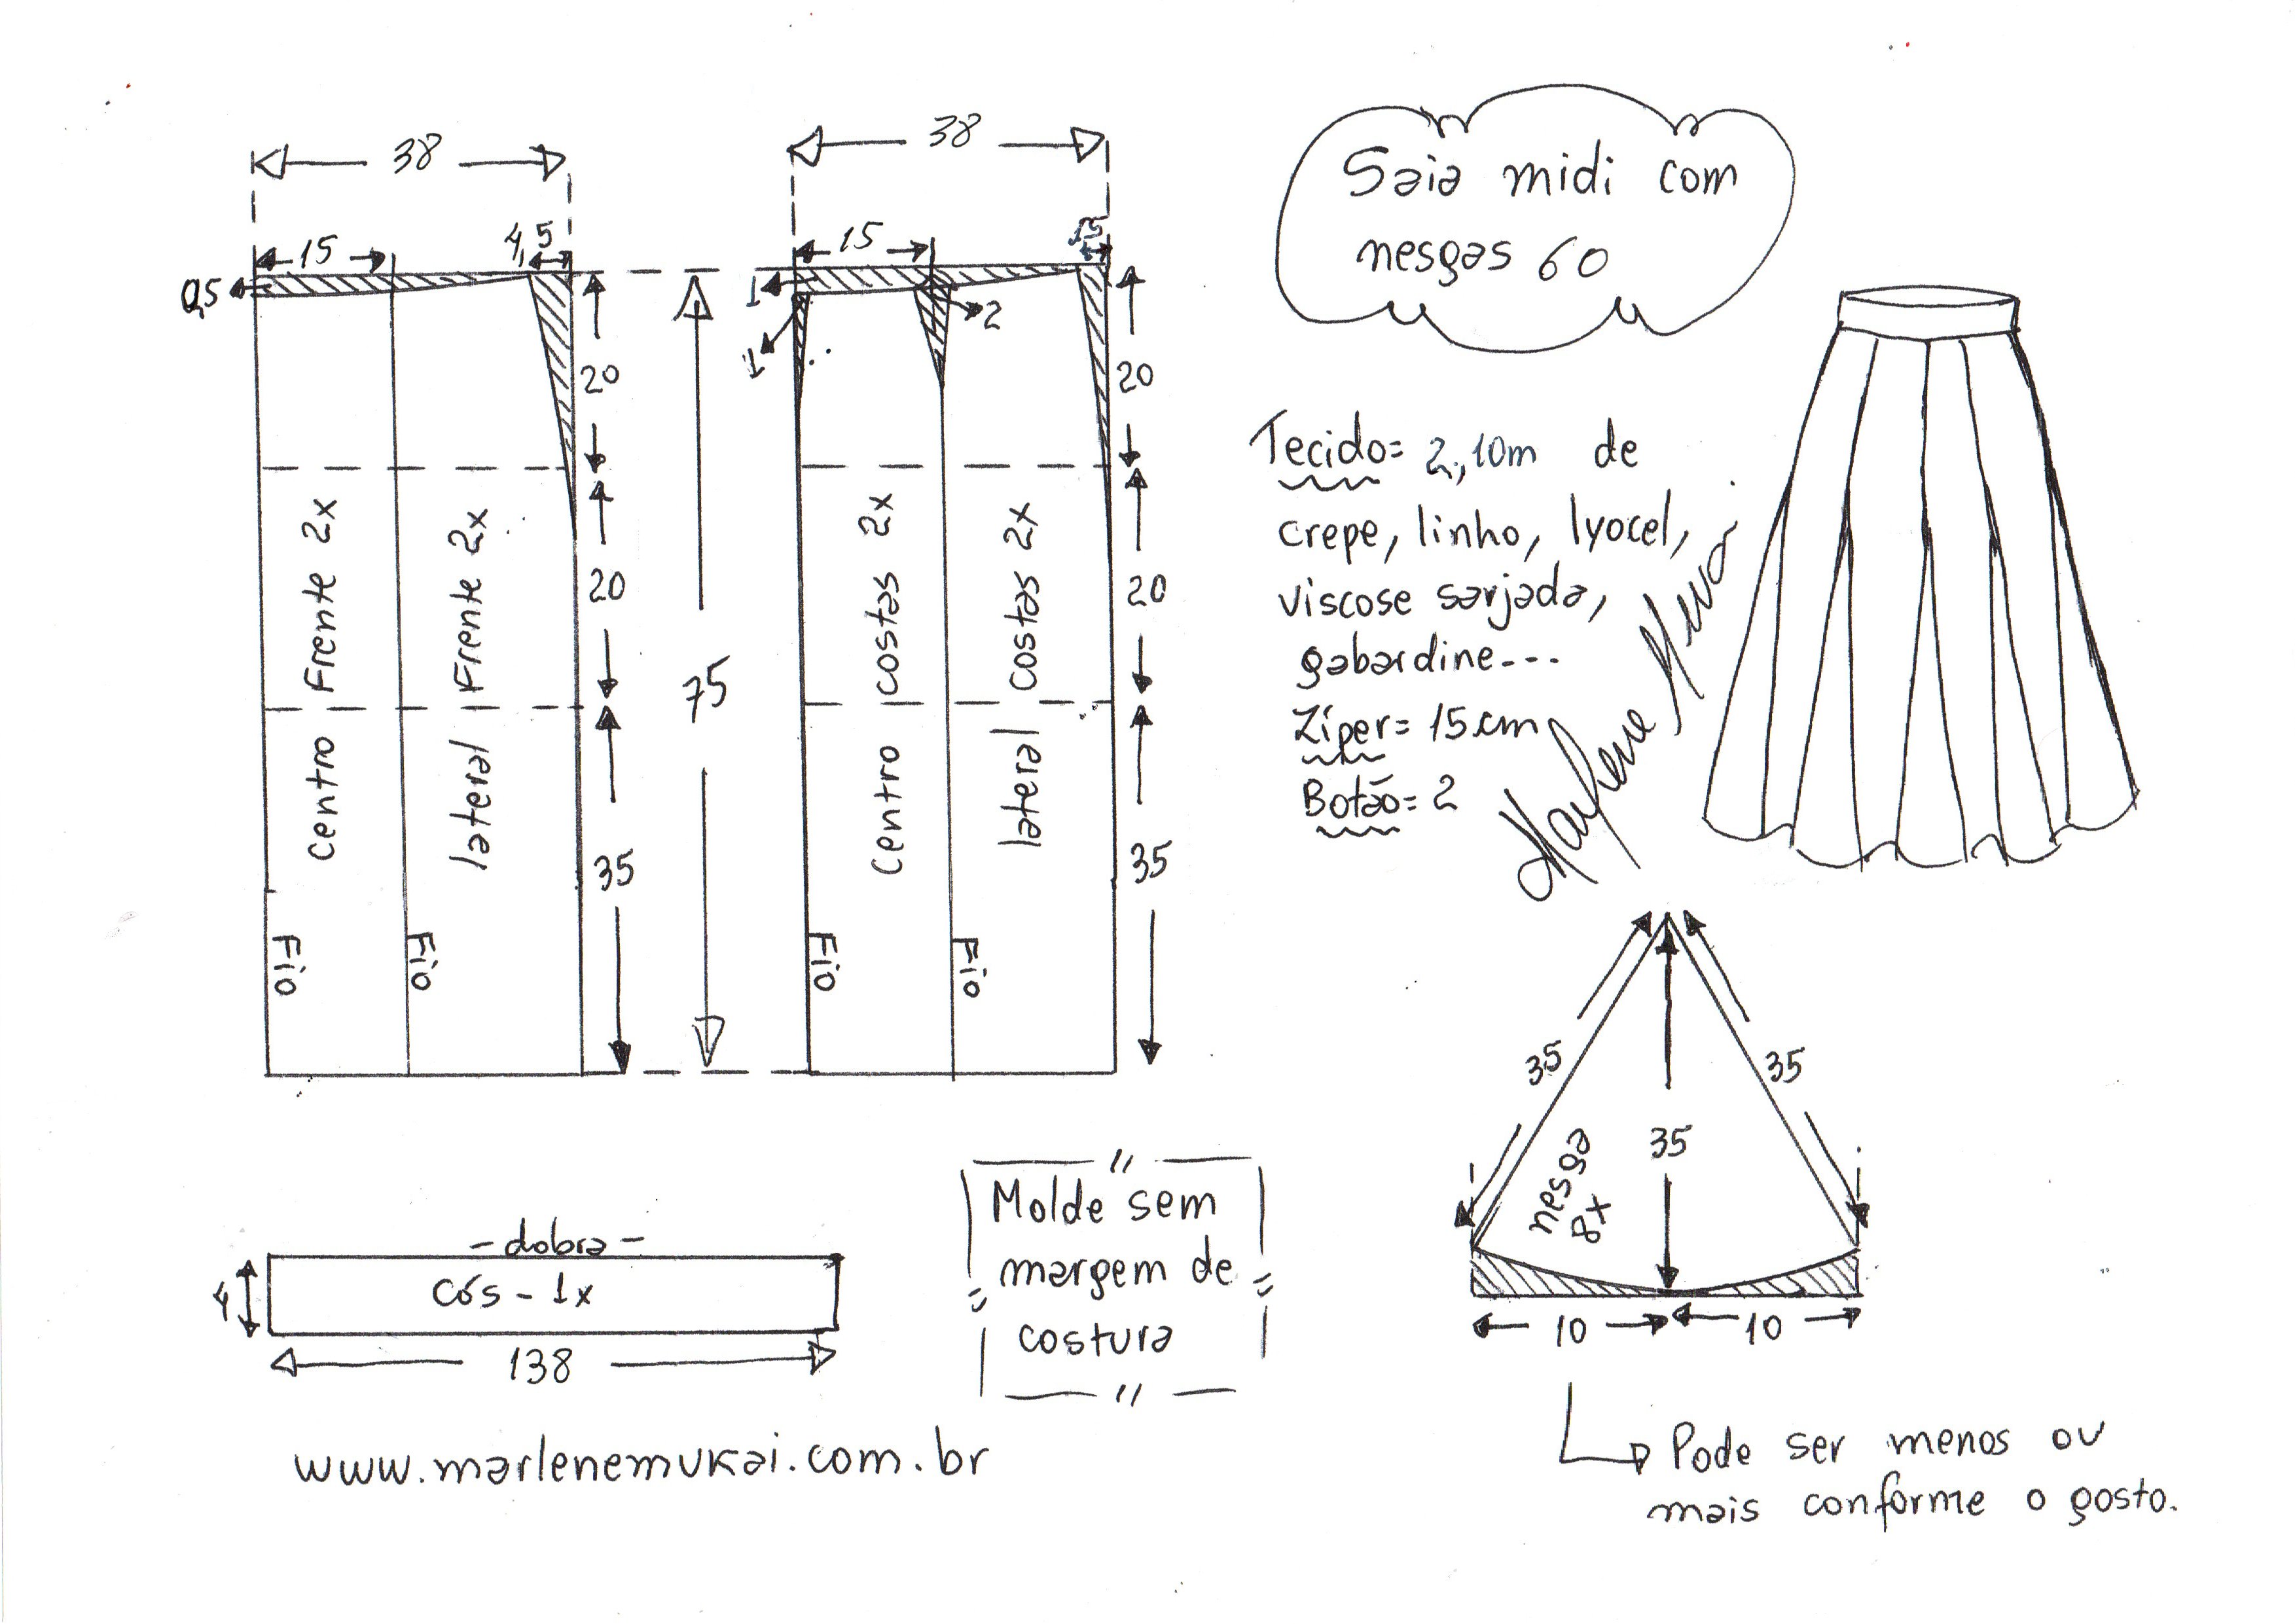 38
38
Saia midi com
nesgas 60
15
4,5
15
1,5
0,5
1
2
1
20
20
Tecido= 2,10m de
crepe, linho, lyocel,
viscose sarjada,
gabardine---
Zíper= 15cm
Botão= 2
Marlene Mukai
centro Frente 2x
lateral Frente 2x
20
75
centro costas 2x
lateral costas 2x
20
35
35
Fio
Fio
Fio
Fio
35
35
35
nesga
8x
10
10
Pode ser menos ou
mais conforme o gosto.
- dobra -
cós - 1x
4
138
Molde sem
margem de
costura
www.marlenemukai.com.br